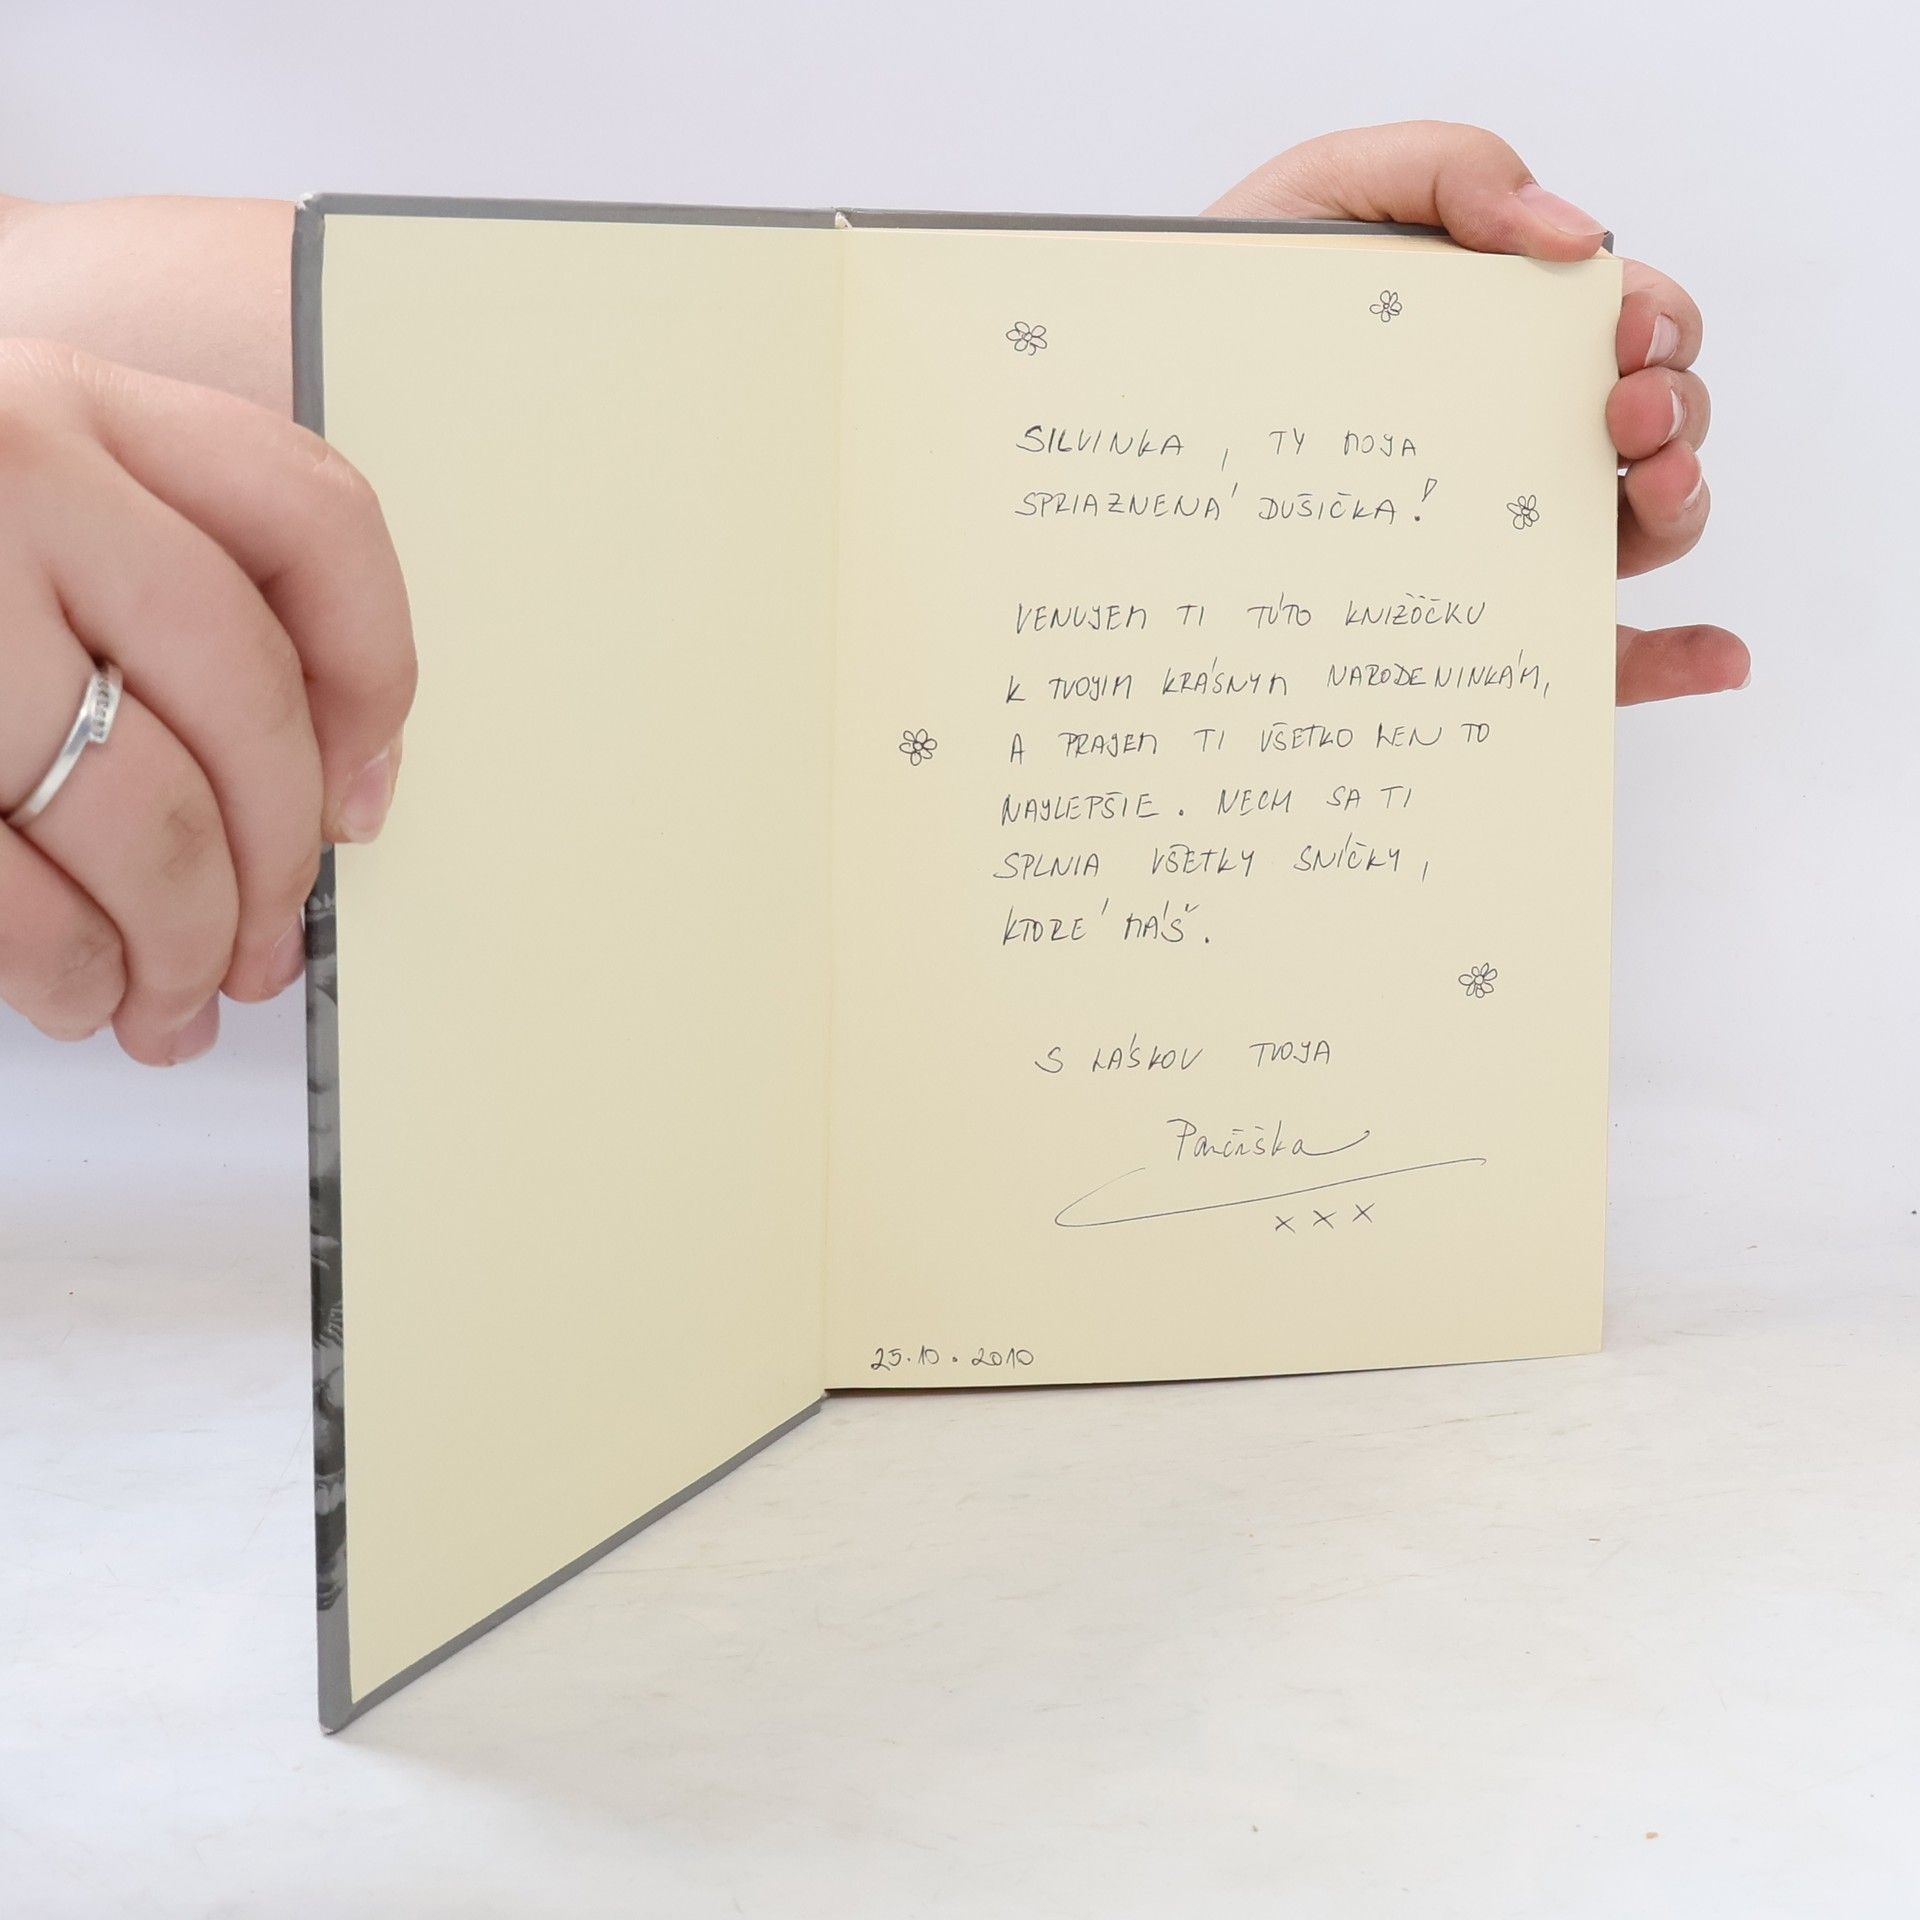 SILVINKA, TY MOJA
SPRIAZNENÁ DUŠIČKA!
VENUJEM TI TÚTO KNIŽÔČKU
K TVOJIM KRÁSNYM NARODENINKÁM,
A PRAJEM TI VŠETKO LEN TO
NAJLEPŠIE. NECH SA TI
SPLNIA VŠETKY SNÍČKY,
KTORÉ MÁŠ.
S LÁSKOU TVOJA
XXX
25.10.2010